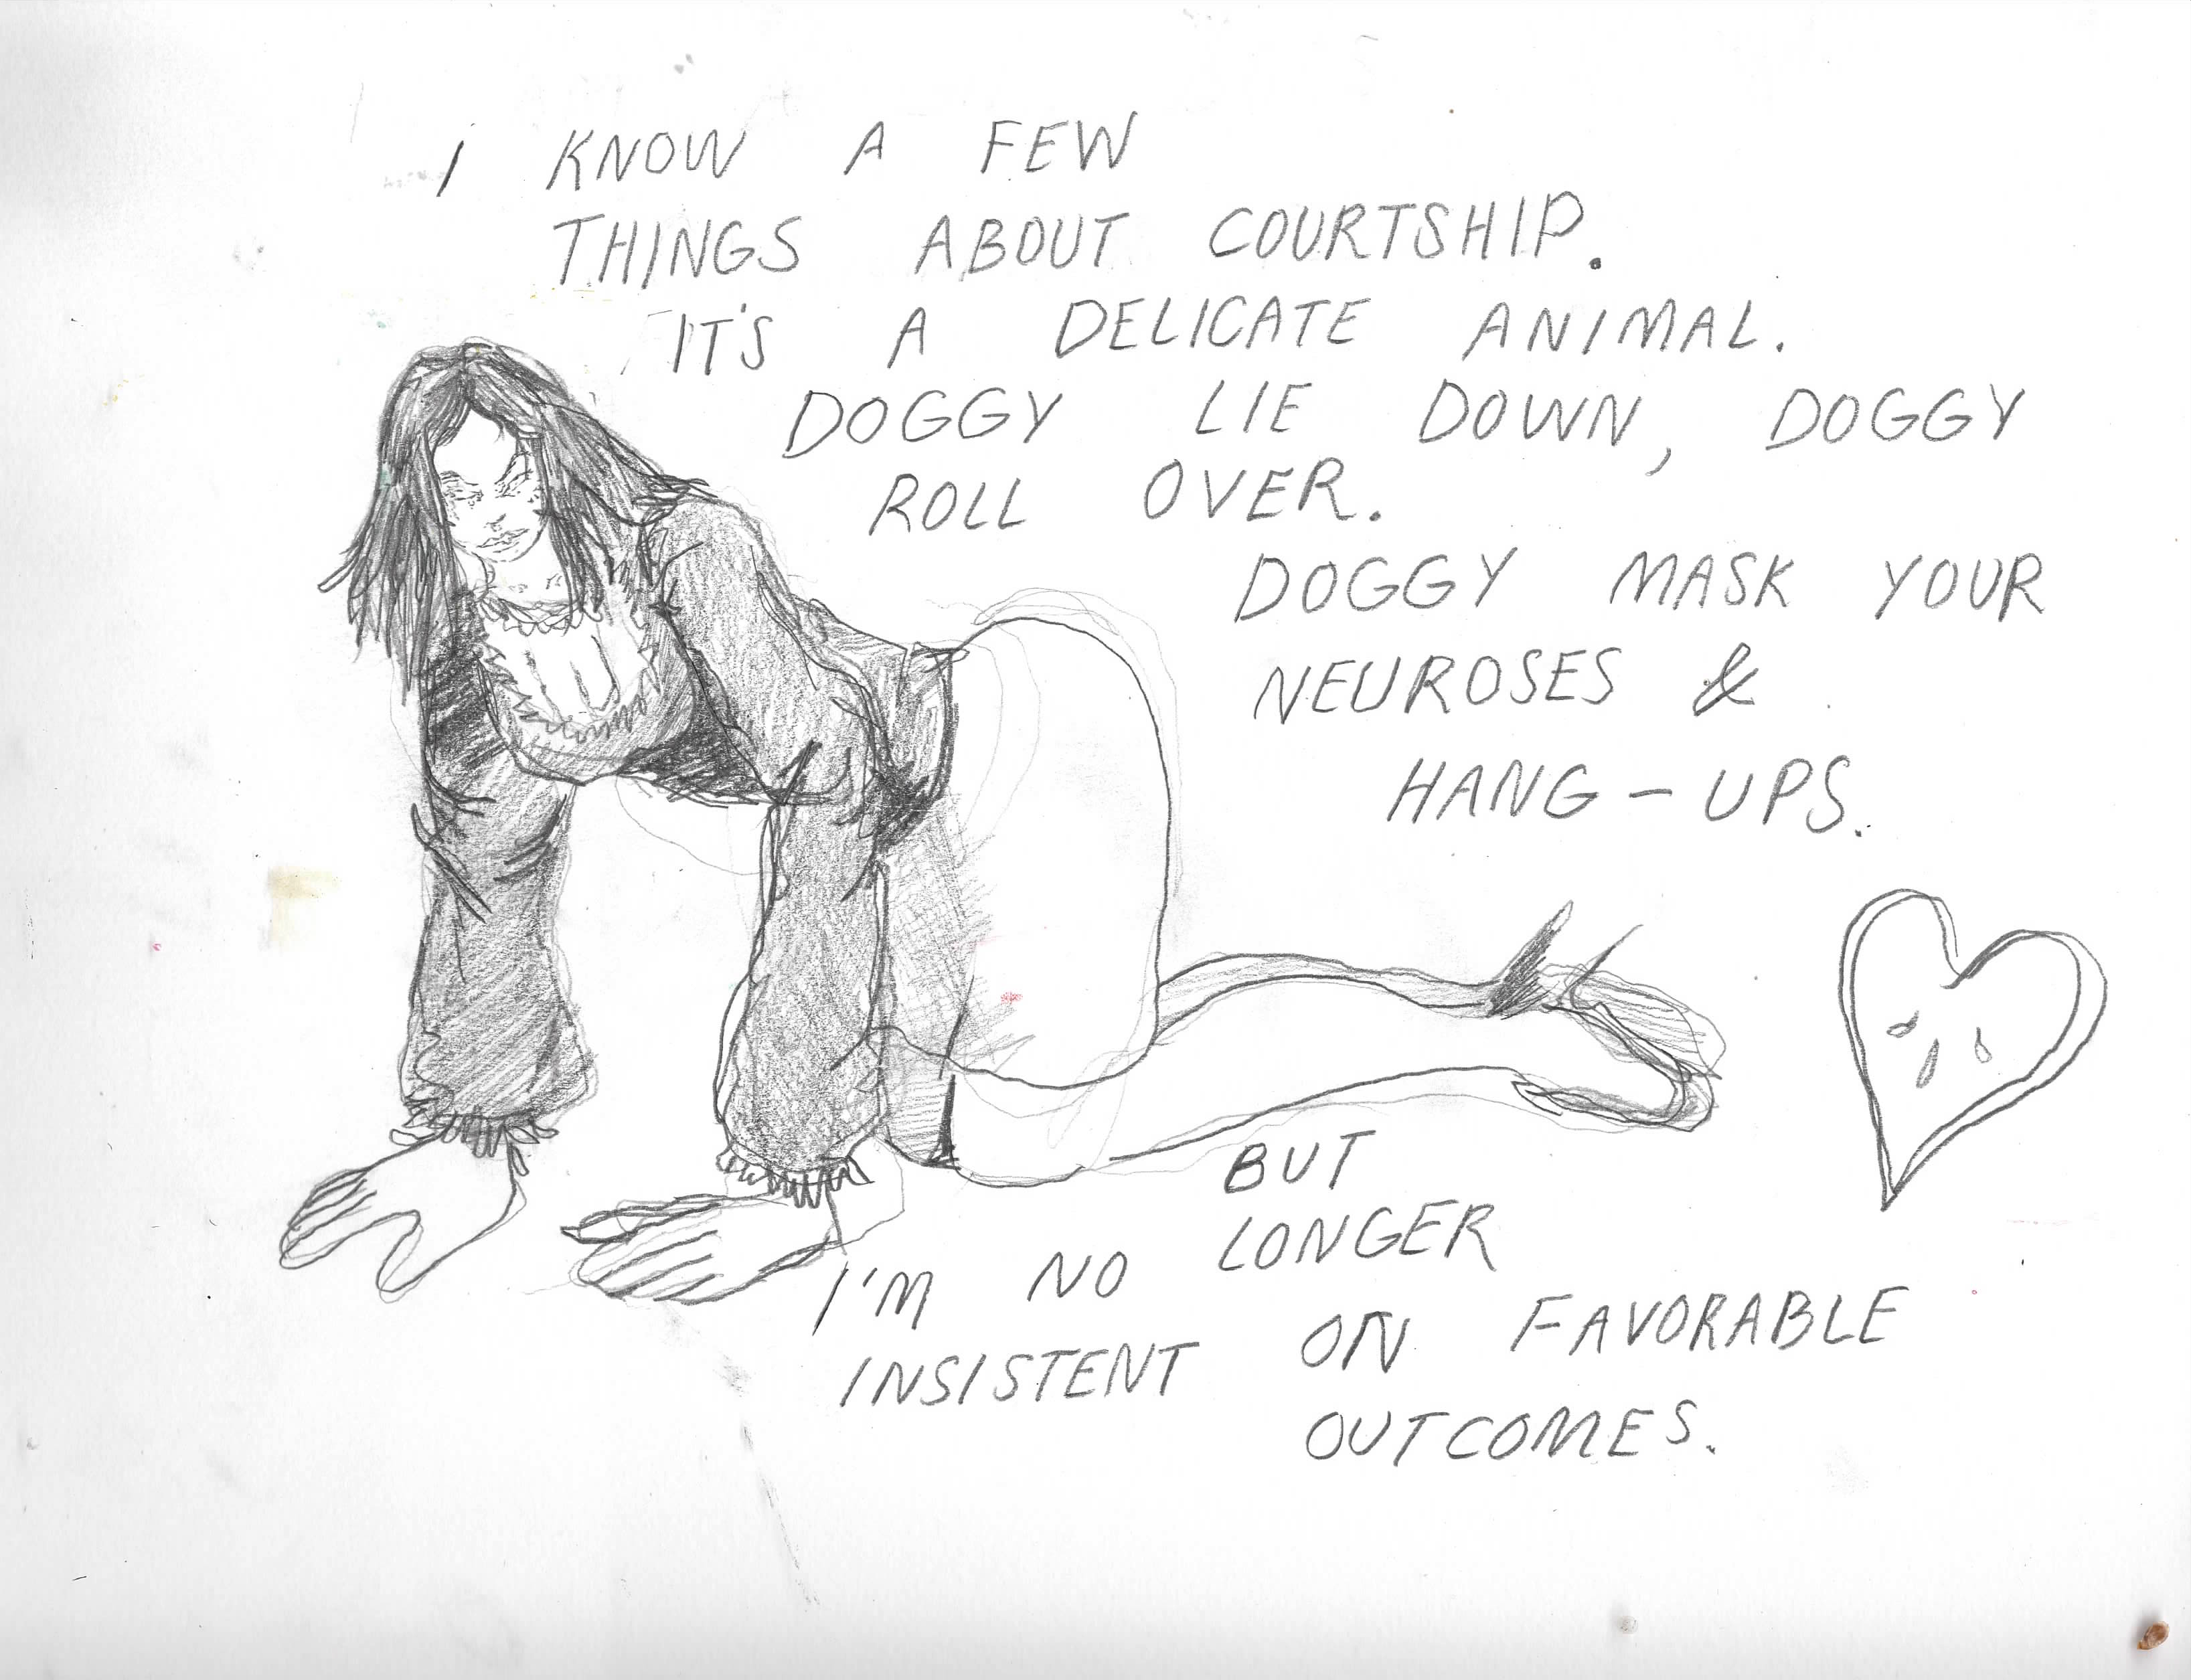 I KNOW A FEW
THINGS ABOUT COURTSHIP.
IT'S A DELICATE ANIMAL.
DOGGY LIE DOWN, DOGGY
ROLL OVER.
DOGGY MASK YOUR
NEUROSES &
HANG-UPS.
BUT
I'M NO LONGER
INSISTENT ON FAVORABLE
OUTCOMES.